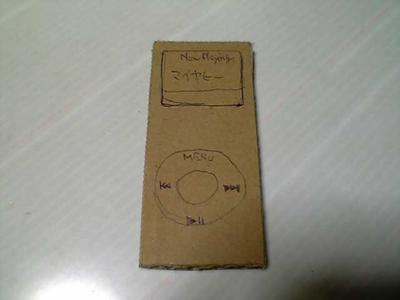 Now Playing
マイヤヒー
MENU